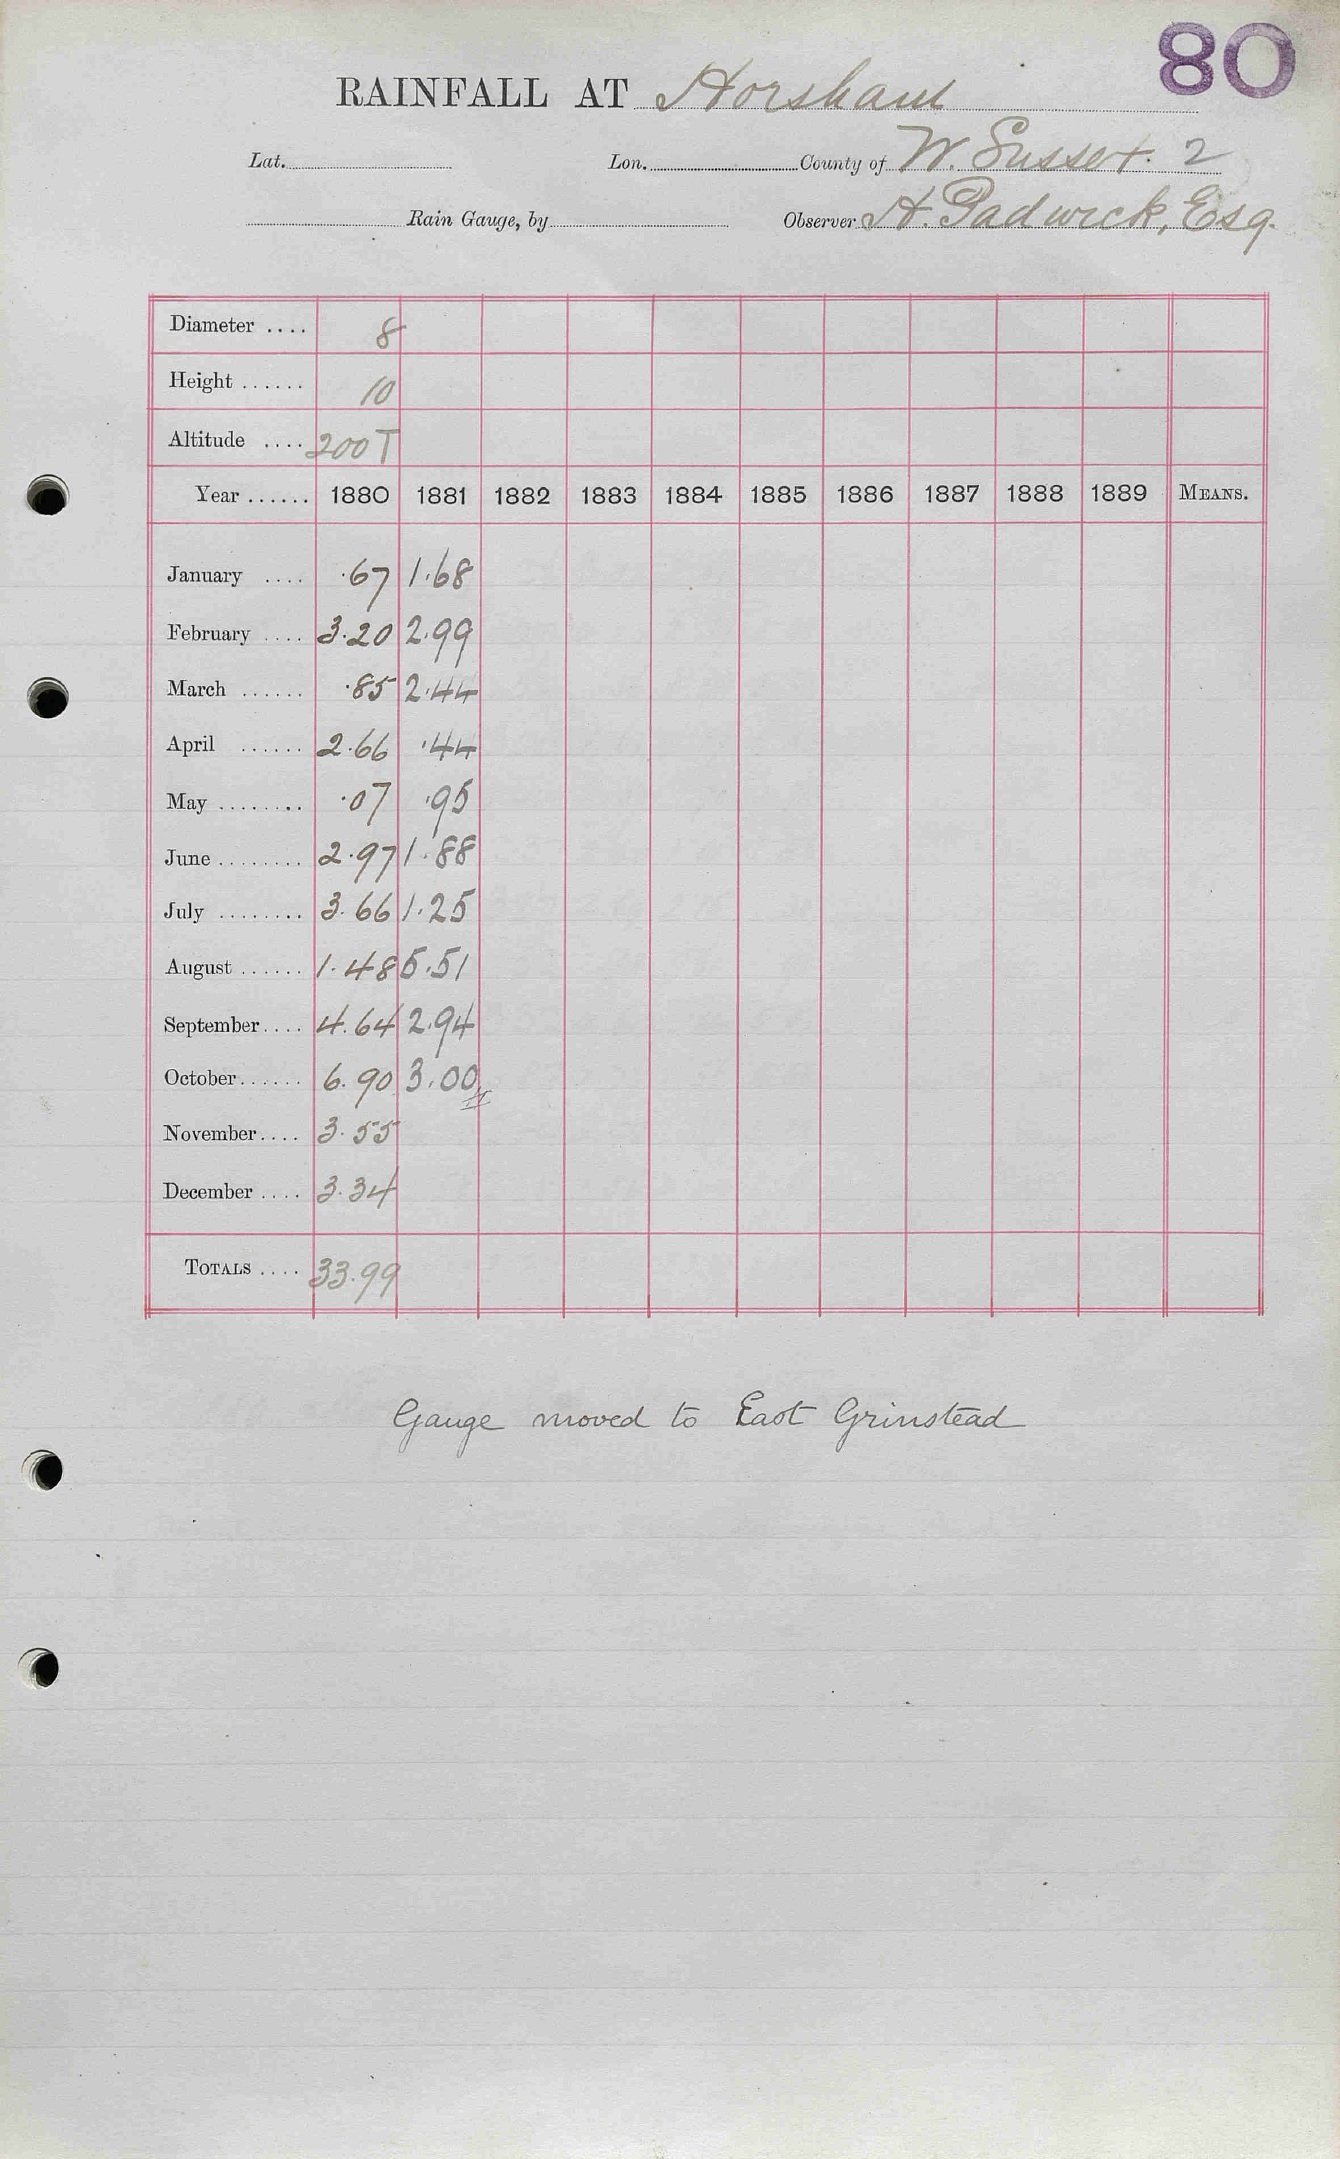 80
RAINFALL AT Horsham
Lat. Lon. County of W. Sussex. 2
Rain Gauge, by Observer H. Padwick, Esq.
Diameter .... 8
Height ...... 10
Altitude .... 200 T
Year ...... 1880 1881 1882 1883 1884 1885 1886 1887 1888 1889 MEANS.
January .... .67 1.68
February .... 3.20 2.99
March ...... .85 2.44
April ...... 2.66 .44
May ........ .07 .95
June ........ 2.97 1.88
July ........ 3.66 1.25
August ...... 1.48 5.51
September .... 4.64 2.94
October ...... 6.90 3.00
November .... 3.55
December .... 3.34
TOTALS .... 33.99
Gauge moved to East Grinstead